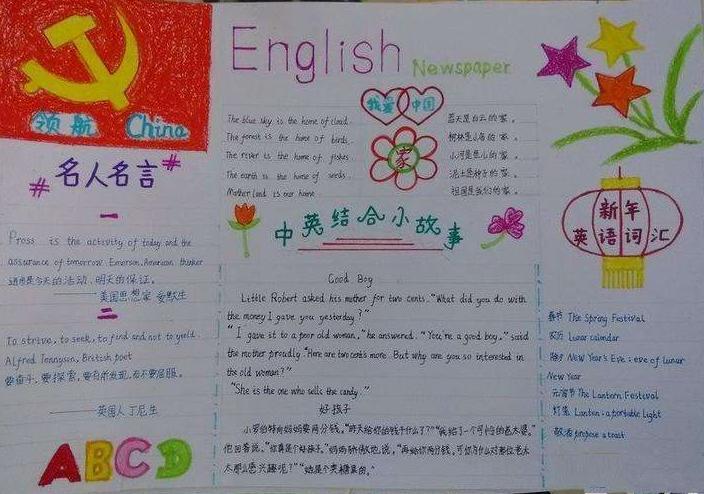 领航 China
# 名人名言 #
一
Pross is the activity of today and the
assurance of tomorrow. Emerson, American thinker
进步是今天的活动,明天的保证。
——美国思想家 爱默生
二
To strive, to seek, to find and not to yield.
Alfred Tennyson, British poet
要奋斗,要探索,要有所发现,而不要屈服。
——英国人 丁尼生
ABCD
English Newspaper
我爱 中国
家
The blue sky is the home of cloud.
The forest is the home of birds.
The river is the home of fishes.
The earth is the home of seeds.
Mother land is our home
蓝天是白云的家。
树林是小鸟的家。
小河是鱼儿的家。
泥土是种子的家。
祖国是我们的家。
中英结合小故事
Good Boy
Little Robert asked his mother for two cents. "What did you do with
the money I gave you yesterday?"
"I gave it to a poor old woman," he answered. "You're a good boy," said
the mother proudly. "Here are two cents more. But why are you so interested in
the old woman?"
"She is the one who sells the candy."
好孩子
小罗伯特向妈妈要两分钱。"昨天给你的钱干什么了?""我给了一个可怜的老太婆,"
他回答说。"你真是个好孩子,"妈妈骄傲地说,"再给你两分钱。可你为什么对那位老太
太那么感兴趣呢?""她是个卖糖果的。"
新年
英语词汇
春节 The Spring Festival
农历 Lunar calendar
除夕 New Year's Eve: eve of lunar
New Year
元宵节 The Lantern Festival
灯笼 Lantern: a portable light
敬酒 propose a toast